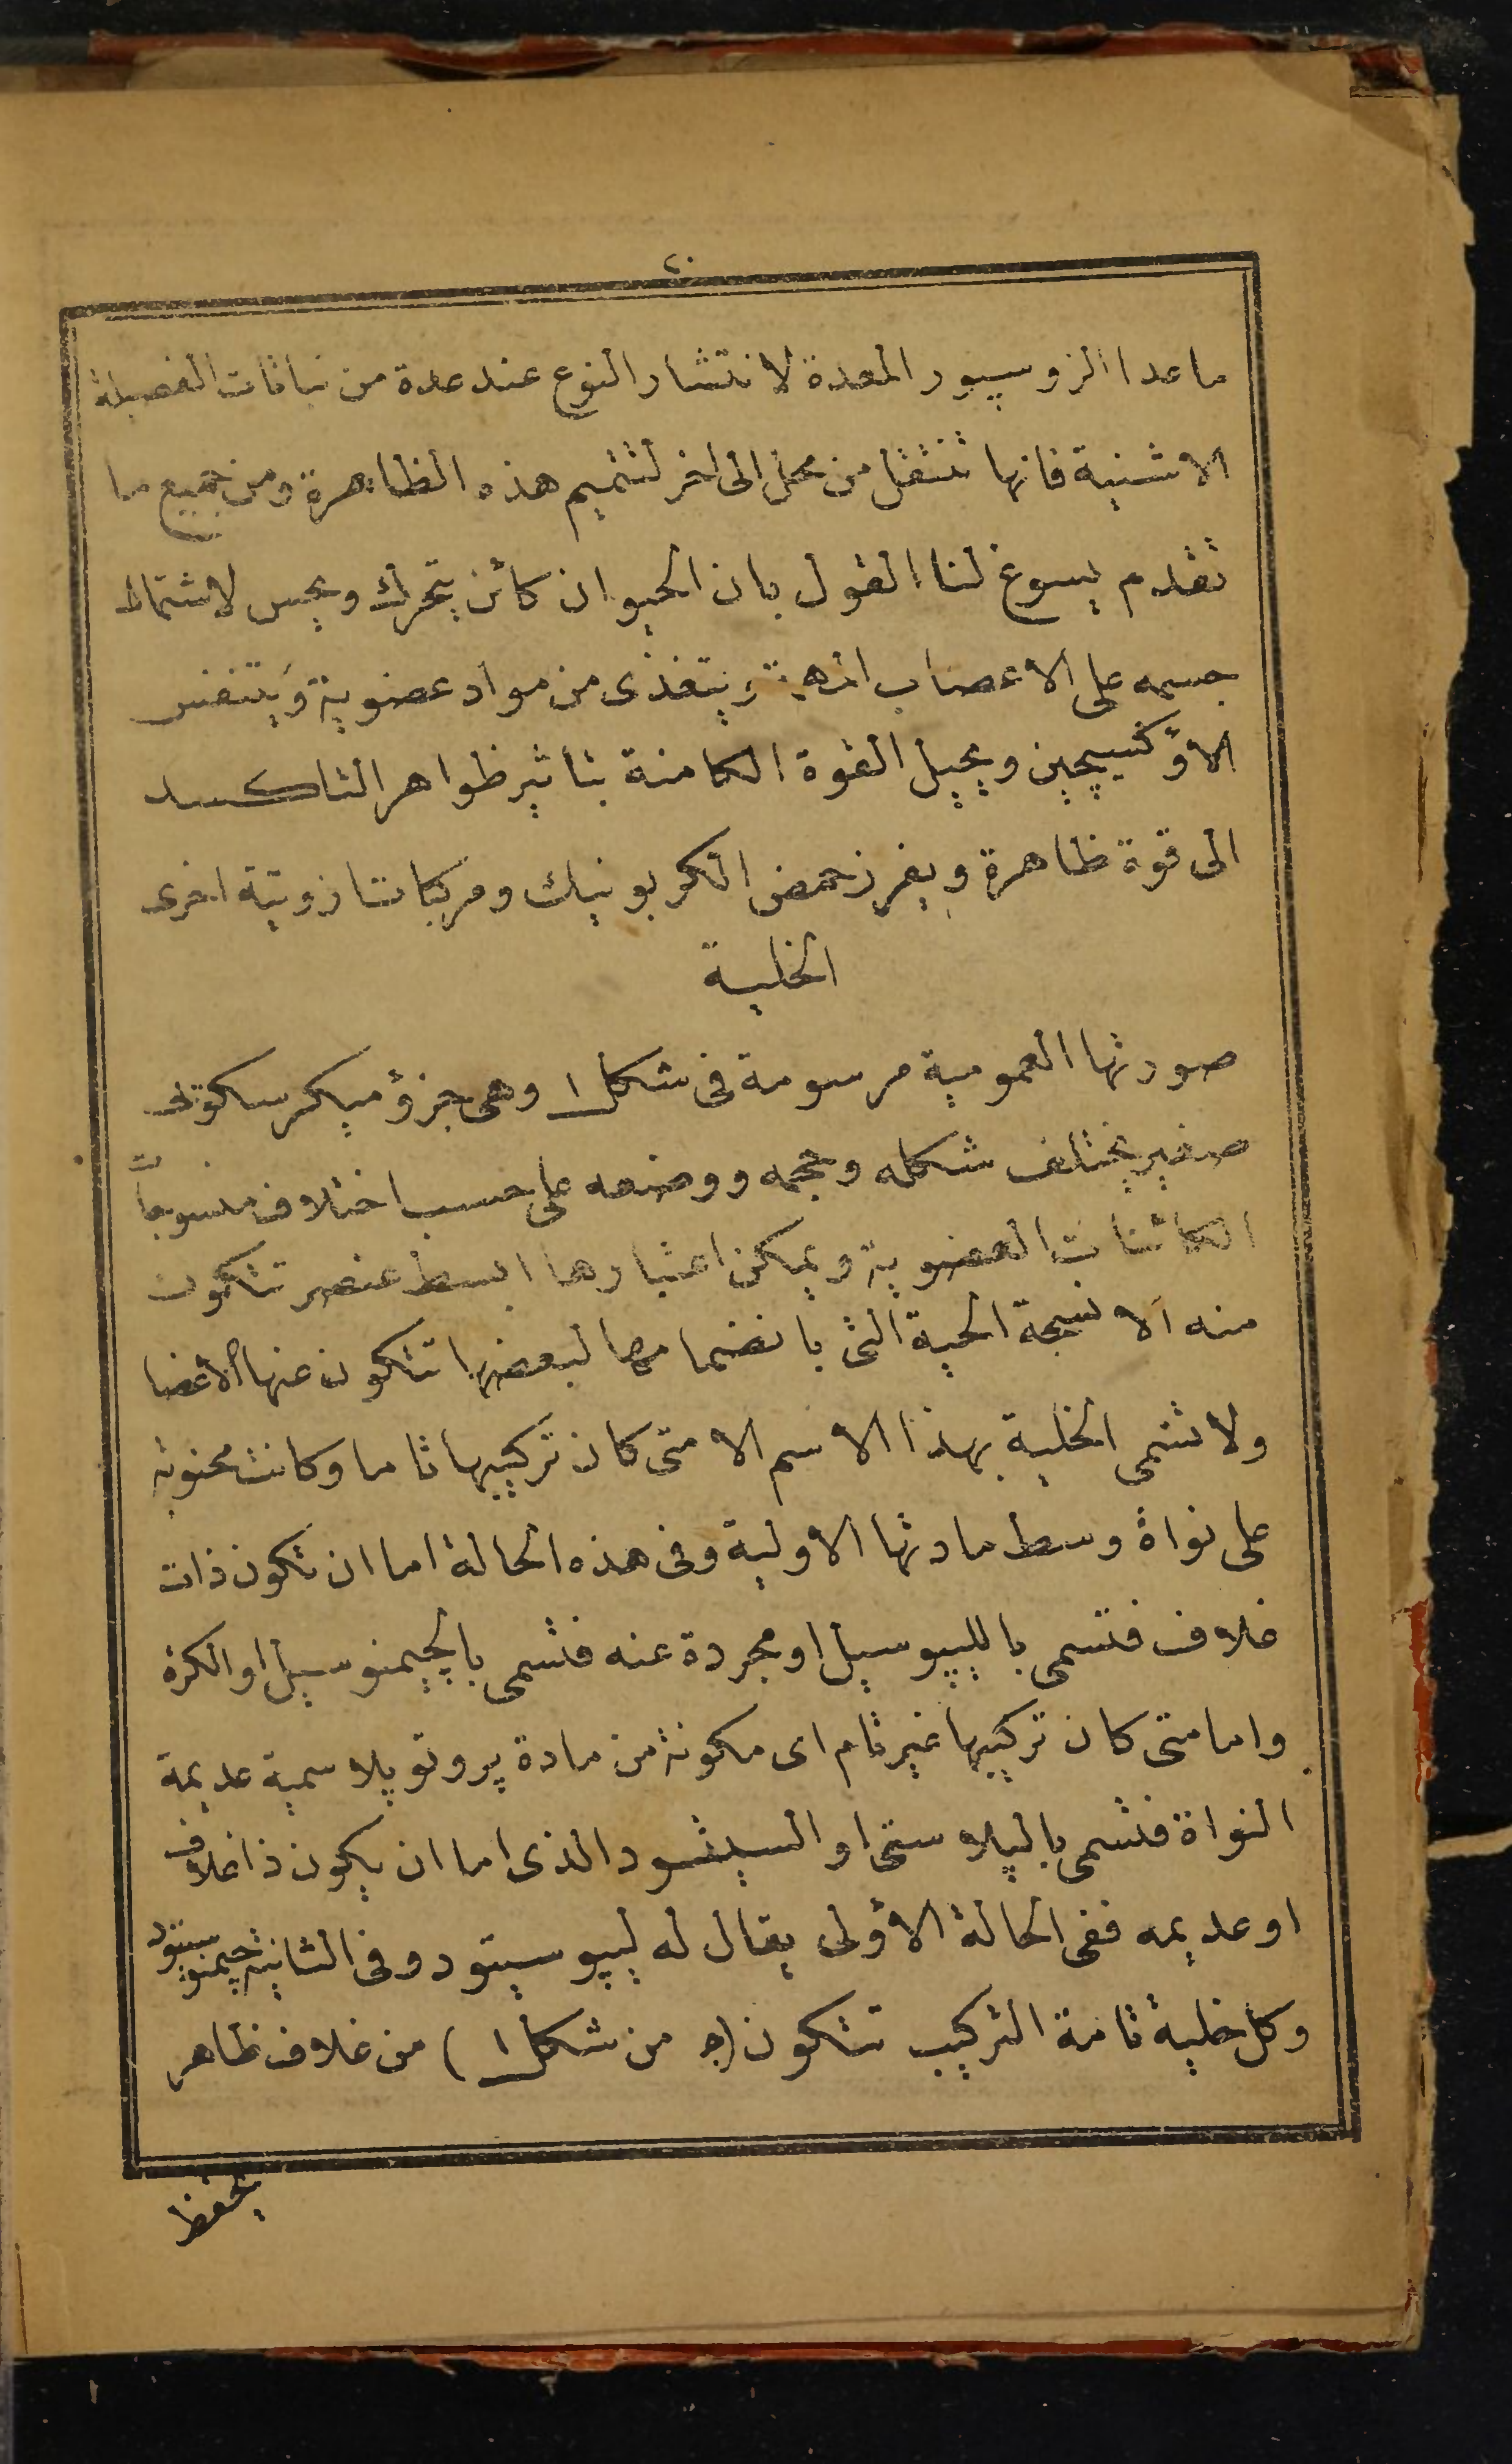 ٢٠
ما عدا الزوسپور المعدة لانتشار النوع عند عدة من نباتات الفصيلة
الاشنية فانها تنتقل من محل الى اخر لتتميم هذه الظاهرة ومن جميع ما
تقدم يسوغ لنا القول بان الحيوان كائن يتحرك ويحس لاشتمال
جسمه على الاعصاب ويتغذى من مواد عضوية ويتنفس
الاوكسيچين ويحيل القوة الكامنة بتاثير ظواهر التاكسد
الى قوة ظاهرة ويفرز حمض الكربونيك ومركبات ازوتية اخرى
الخلية
صورتها العمومية مرسومة فى شكل ١ وهى جزؤ ميكرسكوبى
صغير يختلف شكله وحجمه ووضعه على حسب اختلاف منسوجات
الكائنات العضوية ويمكن اعتبارها ابسط عنصر تتكون
منه الانسجة الحية التى بانضمامها لبعضها تتكون عنها الاعضا
ولا تسمى الخلية بهذا الاسم الا متى كان تركيبها تاما وكانت محتوية
على نواة وسط مادتها الاولية وفى هذه الحالة اما ان تكون ذات
غلاف فتسمى بالليپوسيل او مجردة عنه فتسمى بالچيمنوسيل او الكرة
واما متى كان تركيبها غير تام اى مكونة من مادة پروتوپلاسمية عديمة
النواة فتسمى بالپلاستى او السيتود الذى اما ان يكون ذا غلاف
او عديمه ففى الحالة الاولى يقال له ليپوسيتود وفى الثانية چيمنوسيتود
وكل خلية تامة التركيب تتكون (ج من شكل ١) من غلاف ظاهر
يحفظ